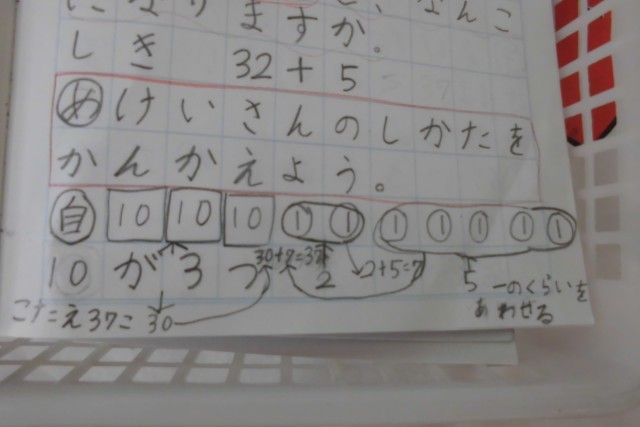 になりますか。
しき 32+5
めけいさんのしかたを
かんかえよう。
自 10 10 10 1 1 1 1 1 1 1
30+7=37
10が3つ 2 2+5=7 5 一のくらいを
あわせる
こたえ37こ 30